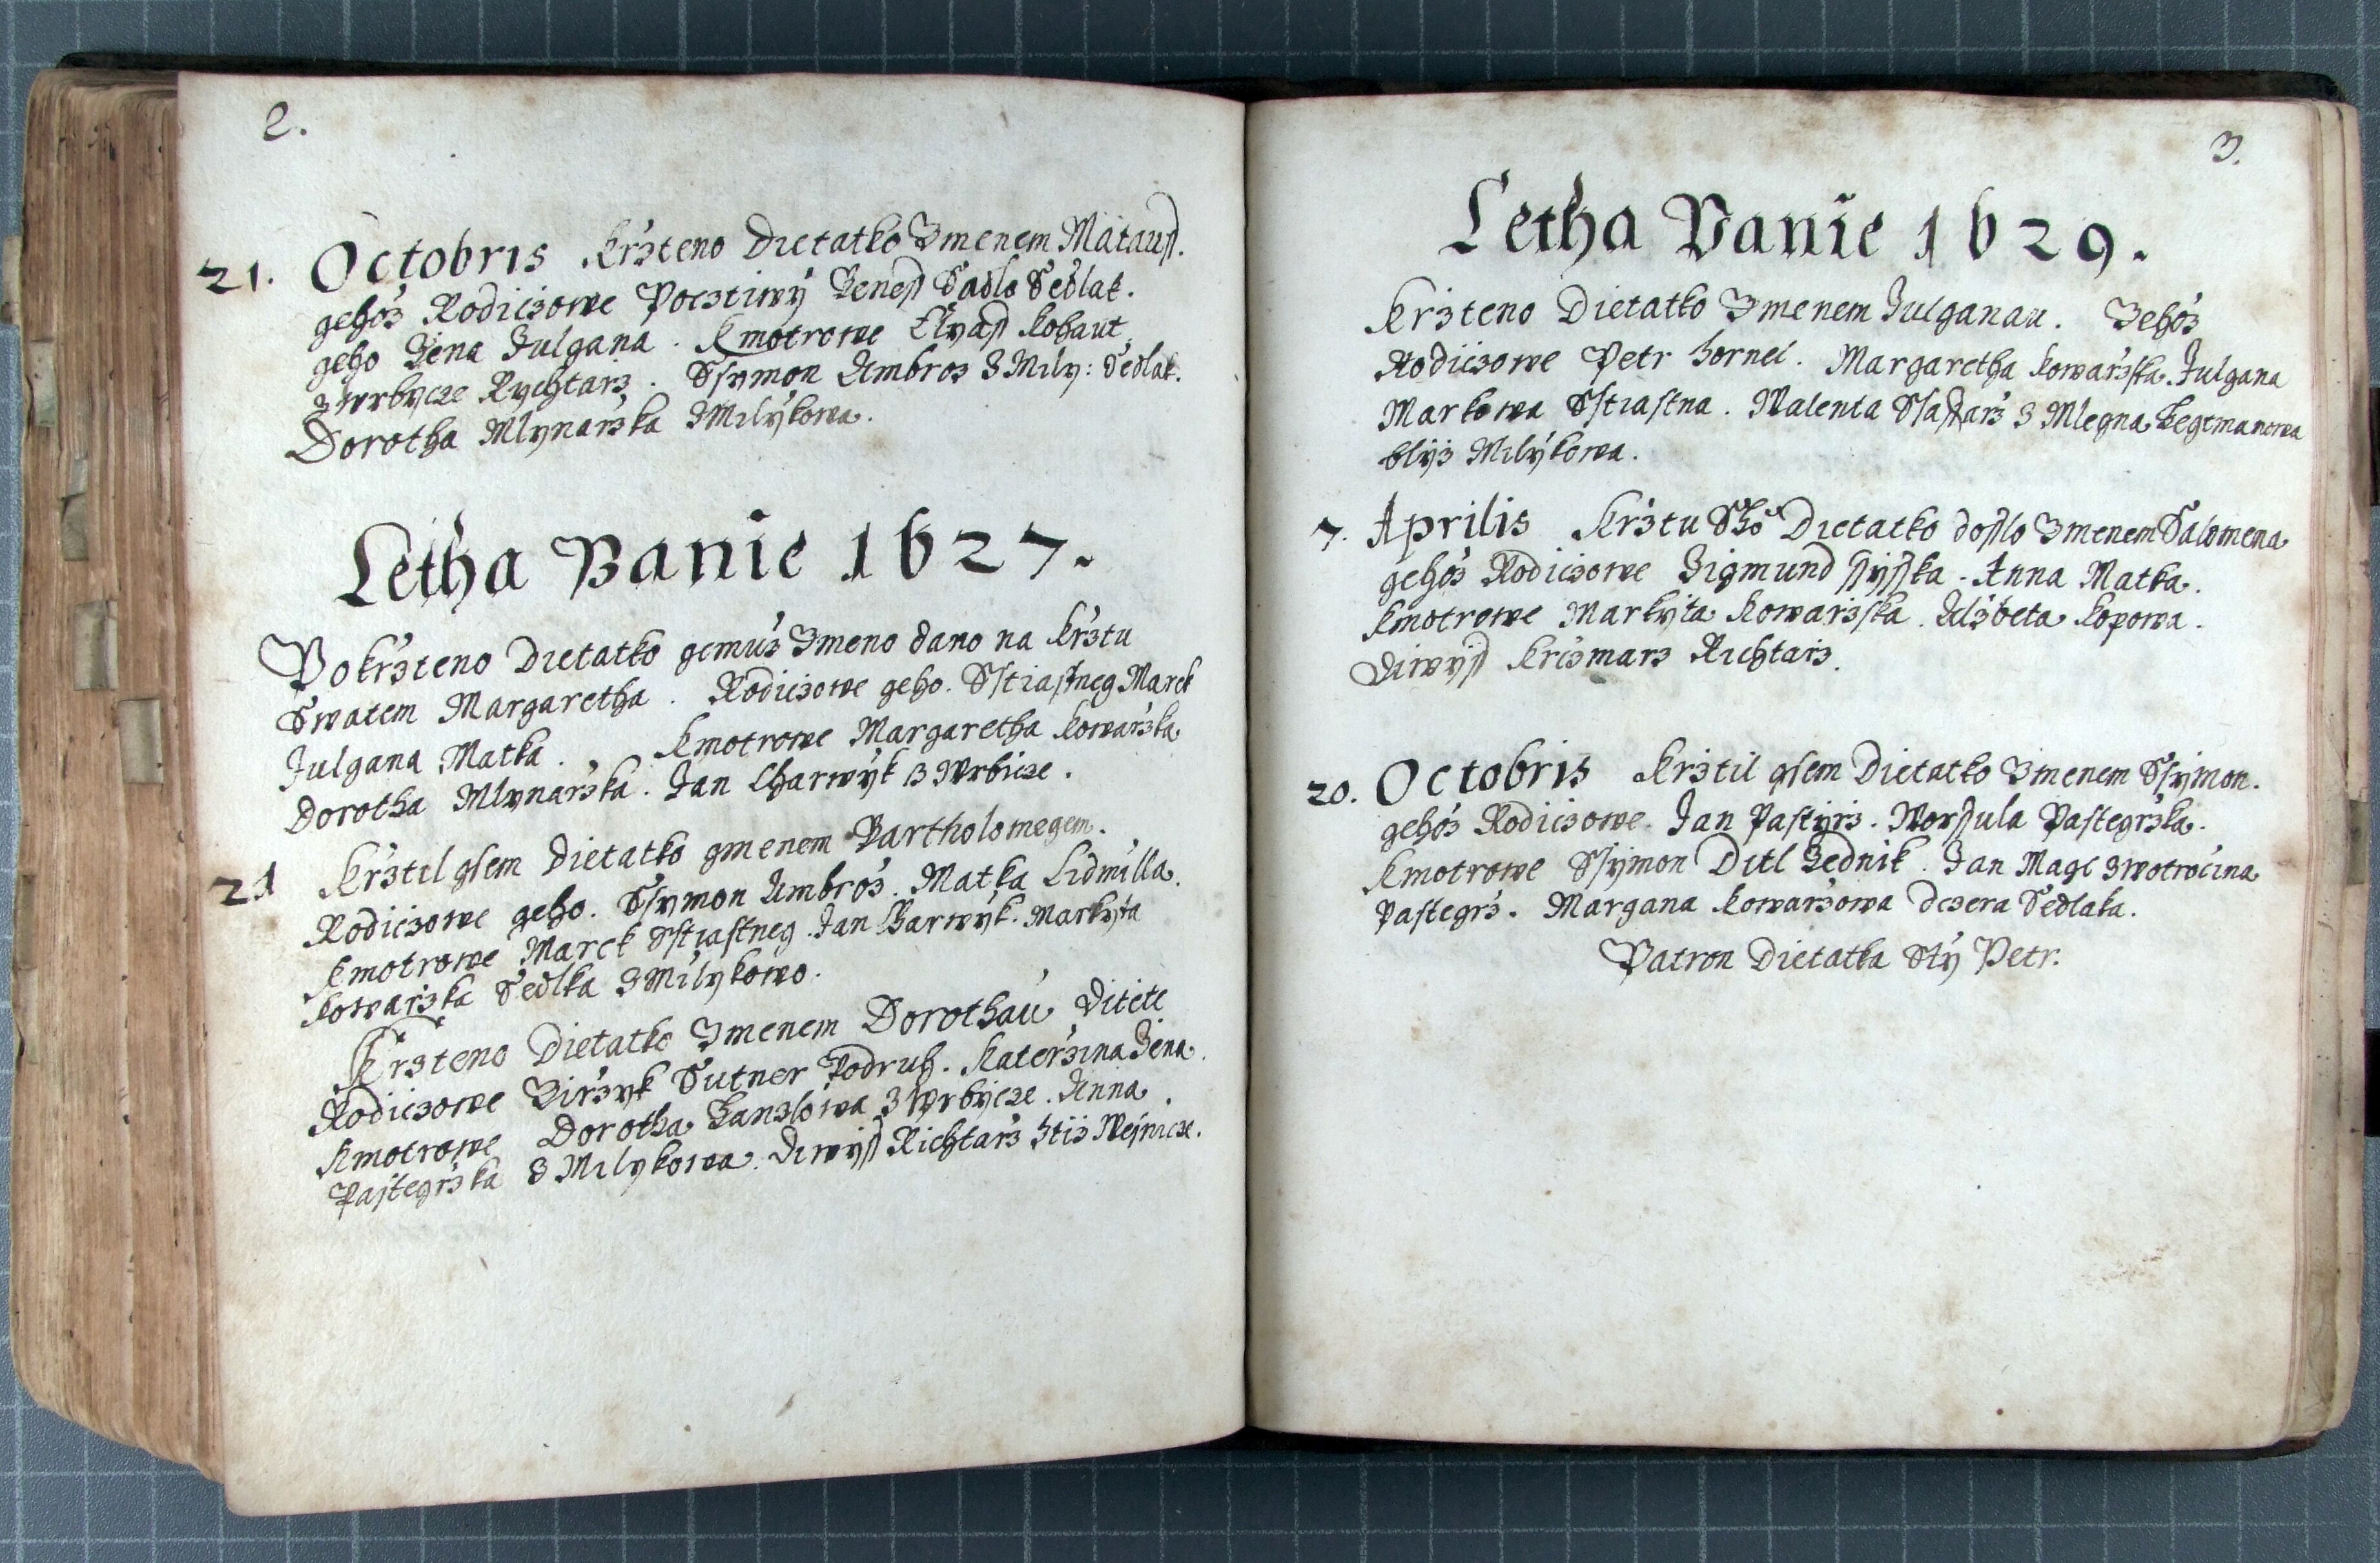 2.
21. Octobris Krżteno Dietatko Zmenem Matauß.
gehoż Rodiczowe Poczťiwý Beneß Sadlo Sedlak.
geho Žena Julgana. Kmotrowe Elyaß Kohaut
z Wrbycze Rychtarż. Ssymon Ambrož z Mily: Sedlak.
Dorotha Mlynarżka z Milýkowa.
Letha Panie 1627.
Pokrżteno Dietatko gemuż Zmeno dano na Krżtu
Swatem Margaretha. Rodiczowe geho. Sstiastneg Marek
Julgana Matka. Kmotrowe Margaretha Kowarżka
Dorotha Mlynarżka. Jan Charwýk z Wrbicze.
21 Krżtil gsem Dietatko gmenem Bartholomegem.
Rodiczowe geho. Ssymon Ambrož. Matka Lidmilla.
Kmotrowe Marek Sstiastneg. Jan Charwýk. Markyta
Kowarżka Sedlka z Milykowo.
Krżteno Dietatko Zmenem Dorothau Ditete
Rodiczowe Girżyk Sutner Podruh. Katerżina Žena.
Kmotrowe Dorotha Hanzlowa z Wrbycze. Anna
Pastegrżka z Milykowa. Diwyß Richtarż Wejnicze.
3.
Letha Panie 1629.
Krżteno Dietatko Zmenem Julganau. Gehož
Rodiczowe Petr Hornei. Margaretha Kowarżska. Julgana
Markowa Sstiastna. Walenta Ssaffarż z Mlegna Hegtmanowa
blýz Milýkowa.
7. Aprilis Krżtu Sho Dietatko doßlo Zmenem Salomena
gehož Rodiczowe Zigmund Ssyßka. Anna Matka.
Kmotrowe Markyta Kowarżska. Alżbeta Kopowa.
Diwyß Kržmarż Richtarż.
20. Octobris Krżtil gsem Dietatko Zmenem Ssymon.
gehož Rodiczowe Jan Pastyrż. Worßula Pastegrżka.
Kmotrowe Ssymon Ditl Zednik. Jan Magl z Wotrocina
Pastegrż. Margana Kowarżowa Dczera Sedlaka.
Patron Dietatka Stý Petr.